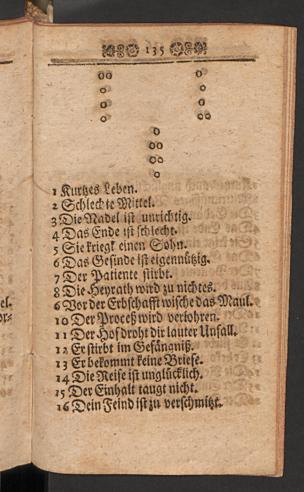 135
1 Kurtzes Leben.
2 Schlechte Mittel.
3 Die Nadel ist unrichtig.
4 Das Ende ist schlecht.
5 Sie kriegt einen Sohn.
6 Das Gesinde ist eigennützig.
7 Der Patiente stirbt.
8 Die Heyrath wird zu nichtes.
6 Vor der Erbschafft wische das Maul.
10 Der Proceß wird verlohren.
11 Der Hof droht dir lauter Unfall.
12 Er stirbt im Gefängniß.
13 Er bekommt keine Briefe.
14 Die Reise ist unglücklich.
15 Der Einhalt taugt nicht.
16 Dein Feind ist zu verschmitzt.